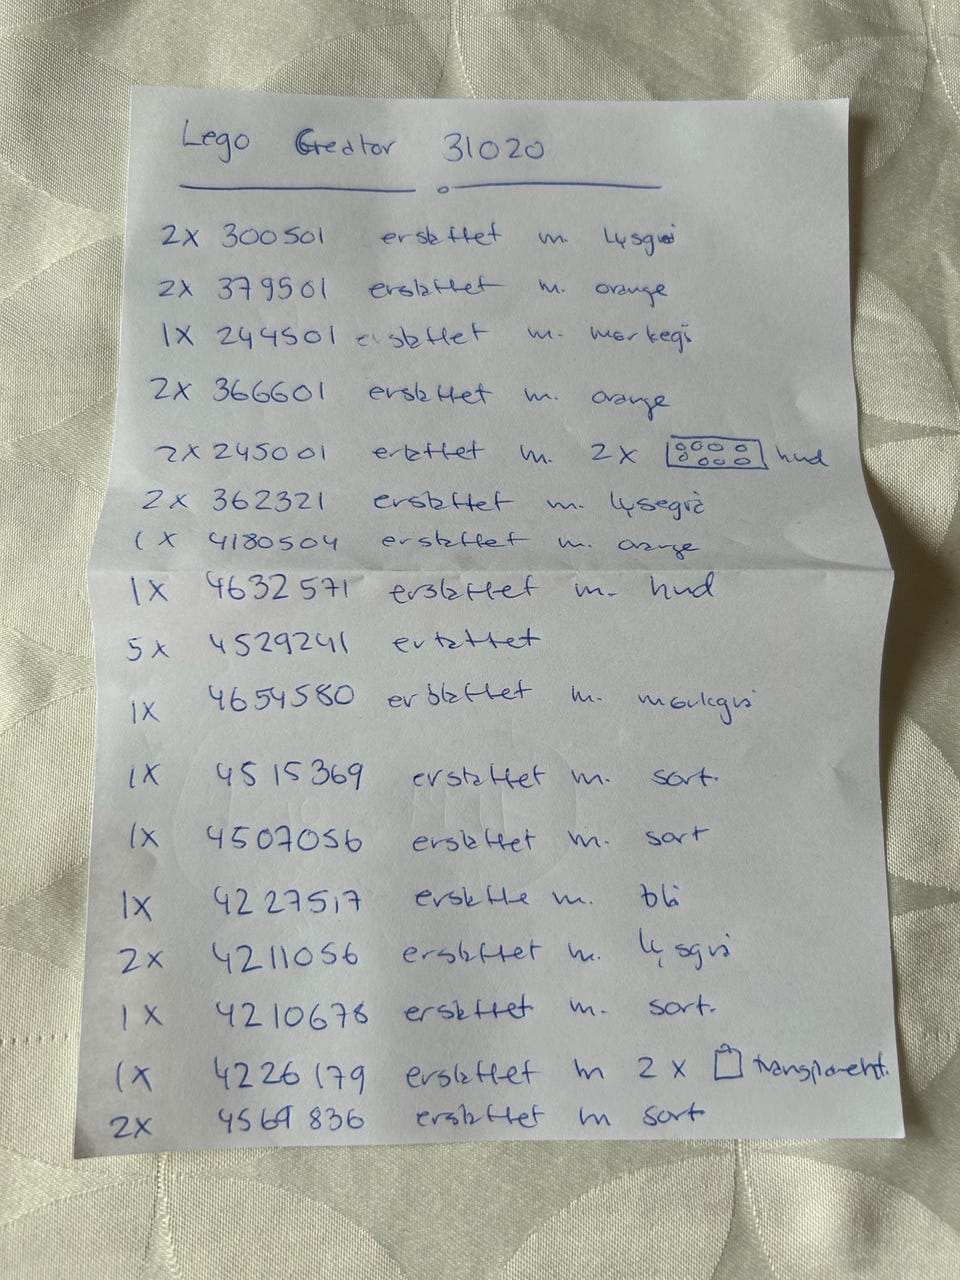 Lego Creator 31020
2x 300501 erstattet m. lysgrå
2x 379501 erstattet m. orange
1x 244501 erstattet m. mørkegrå
2x 366601 erstattet m. orange
2x 245001 ertattet m. 2x hud
2x 362321 erstattet m. lysegrå
1x 4180504 erstattet m. orange
1x 4632571 erstattet m. hud
5x 4529241 ertattet
1x 4654580 erstattet m. mørkgrå
1x 4515369 erstattet m. sort.
1x 4507056 erstattet m. sort
1x 4227517 erstatte m. blå
2x 4211056 erstattet m. lysgrå
1x 4210678 erstattet m. sort.
1x 4226179 erstattet m 2x transparent.
2x 4569836 erstattet m sort